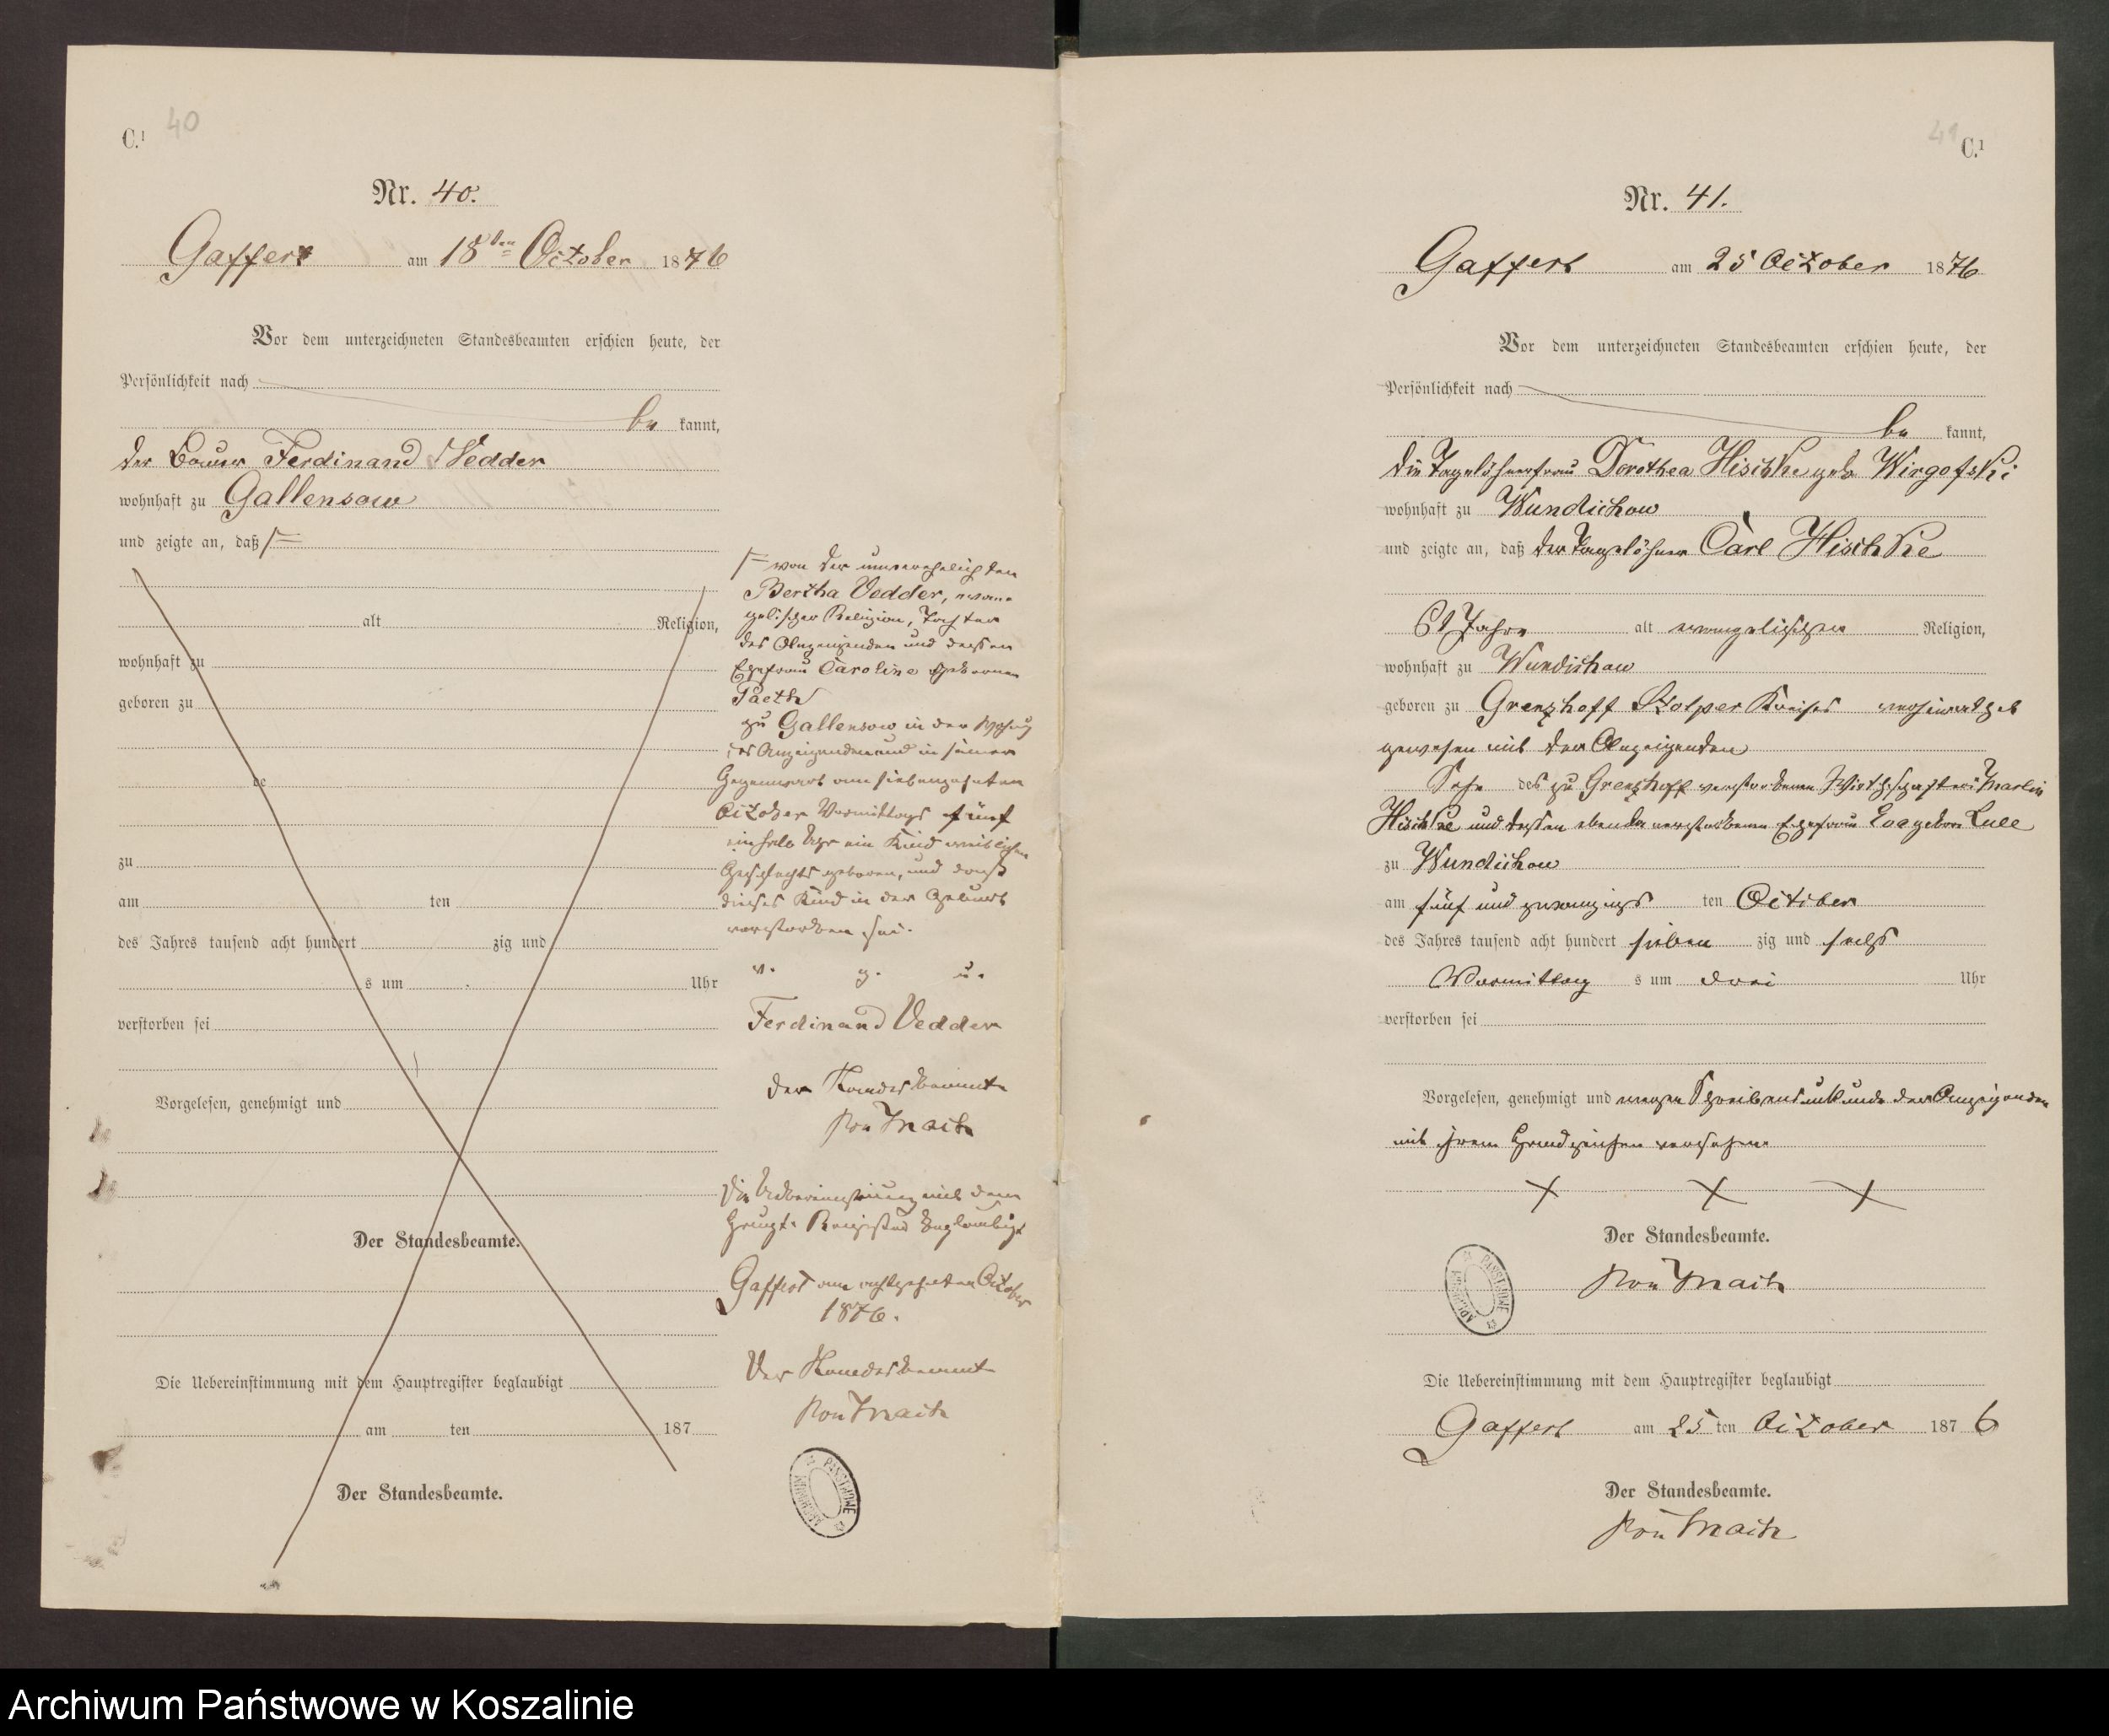 C.¹ 40
Nr. 40.
Gaffert am 18ten October 1876
Vor dem unterzeichneten Standesbeamten erschien heute, der
Persönlichkeit nach
be kannt,
der Bauer Ferdinand Vedder
wohnhaft zu Gallensow
und zeigte an, daß
alt Religion,
wohnhaft zu
geboren zu
zu
am ten
des Jahres tausend acht hundert zig und
s um Uhr
verstorben sei
Vorgelesen, genehmigt und
Der Standesbeamte.
Die Uebereinstimmung mit dem Hauptregister beglaubigt
am ten 187
Der Standesbeamte.
von der unverehelichten
Bertha Vedder, evan-
gelischer Religion, Tochter
des Anzeigenden und dessen
Ehefrau Caroline geborenen
Paeth
zu Gallensow in der Wohnung
des Anzeigenden und in seiner
Gegenwart am siebenzehnten
October Vormittags fünf
einhalb Uhr ein Kind weiblichen
Geschlechts geboren, und daß
dieses Kind in der Geburt
verstorben sei.
v. g. u.
Ferdinand Vedder
Der Standesbeamte
Die Uebereinstimmung mit dem
Haupt-Register beglaubigt
Gaffert am achtzehnten October
1876.
Der Standesbeamte
ARCHIWUM PAŃSTWOWE
41 C.¹
Nr. 41.
Gaffert am 25 October 1876
Vor dem unterzeichneten Standesbeamten erschien heute, der
Persönlichkeit nach
be kannt,
die Tagelöhnerfrau Dorothea Hischke geb Wirgofski
wohnhaft zu Wundichow
und zeigte an, daß der Tagelöhner Carl Hischke
61 Jahre alt evangelischer Religion,
wohnhaft zu Wundichow
geboren zu Grenzhoff Stolper Kreises verheirathet
gewesen mit der Anzeigenden
Sohn des zu Grenzhoff verstorbenen Martin
Hischke und dessen ebenda verstorbenen Ehefrau Eva gebor
zu Wundichow
am fünf und zwanzigs ten October
des Jahres tausend acht hundert sieben zig und sechs
Vormittag s um drei Uhr
verstorben sei
Vorgelesen, genehmigt und wegen Schreibensunkunde der Anzeigenden
mit ihrem Handzeichen versehen
X X X
Der Standesbeamte.
ARCHIWUM PAŃSTWOWE
Die Uebereinstimmung mit dem Hauptregister beglaubigt
Gaffert am 25 ten October 1876
Der Standesbeamte.
Archiwum Państwowe w Koszalinie